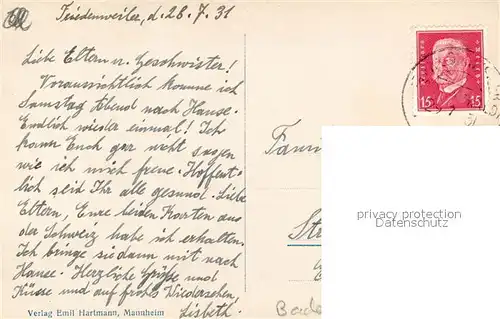 Friedenweiler, d. 28.7.31
Liebe Eltern u. Geschwister!
Voraussichtlich komme ich
Samstag Abend nach Hause.
Endlich wieder einmal! Ich
kann Euch gar nicht sagen
wie ich mich freue. Hoffent-
lich seid Ihr alle gesund. Liebe
Eltern, Eure beiden Karten aus
der Schweiz habe ich erhalten.
Ich bringe sie dann mit nach
Hause. Herzliche Grüße und
Küsse und auf frohes Wiedersehen,
Lisbeth.
Verlag Emil Hartmann, Mannheim
15 15
Fam
St
Bade
privacy protection
Datenschutz